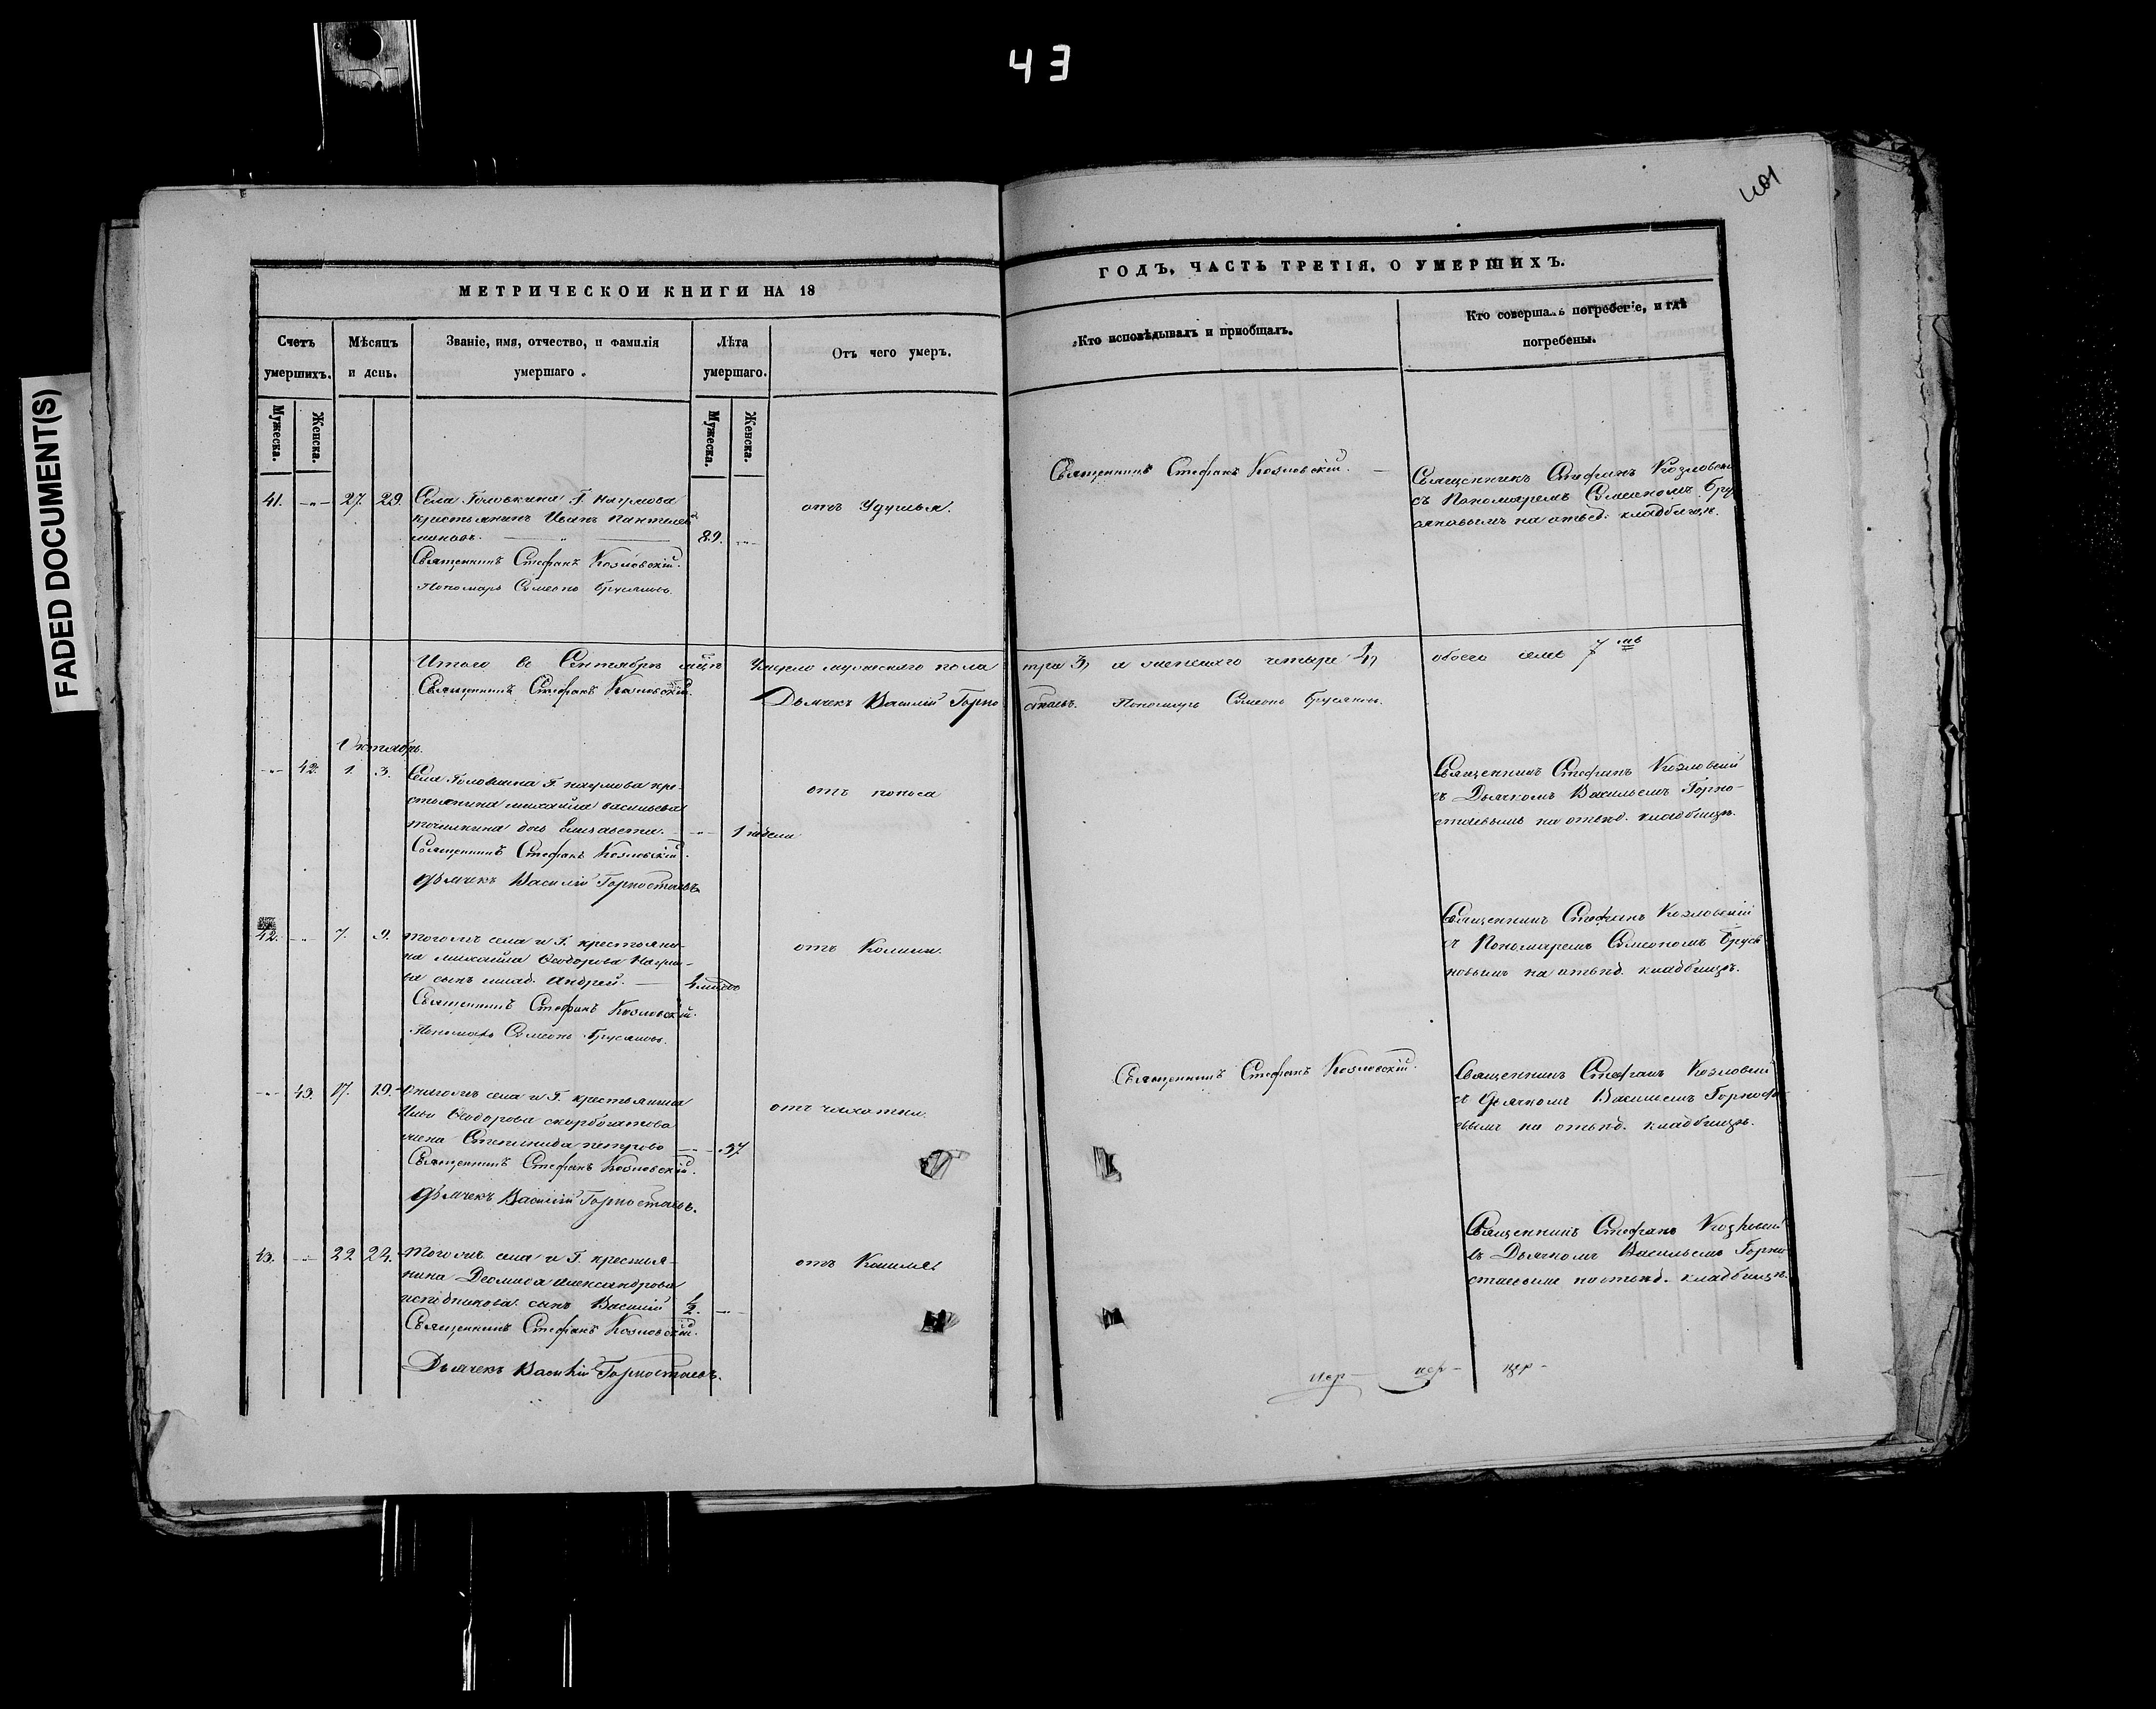 43
401
FADED DOCUMENT(S)
МЕТРИЧЕСКОЙ КНИГИ НА 18
ГОДЪ, ЧАСТЬ ТРЕТІЯ, О УМЕРШИХЪ.
Счетъ умершихъ.
Мѣсяцъ и день.
Званіе, имя, отчество, и фамилія умершаго.
Лѣта умершаго.
Отъ чего умеръ.
Кто исповѣдывалъ и пріобщалъ.
Кто совершалъ погребеніе, и гдѣ погребены.
Мужеска.
Женска.
Мужеска.
Женска.
41. 27. 29. Села Головкина Г. Наумова
крестьянинъ Иванъ Пантелей
моновъ. 89.
Священникъ Стефанъ Козловскій.
Пономарь Симеонъ Брусяновъ.
отъ Удушья.
Священникъ Стефанъ Козловскій.
Священникъ Стефанъ Козловскі
съ Пономаремъ Симеономъ Бру
сяновымъ на отвед. кладбищѣ.
Итого въ Сентябрѣ мцѣ Умерло мужескаго пола три 3, и женскаго четыре 4, обоего семь 7мь
Священникъ Стефанъ Козловскій.
Дьячекъ Василій Горностаевъ. Пономарь Симеонъ Брусяновъ.
Октябрь.
42. 1. 3. Села Головкина Г. Наумова кре-
стьянина Михайла Васильева
дочь Елисавета. 1 недели
Священникъ Стефанъ Козловскій.
Дьячекъ Василій Горностаевъ.
отъ поноса
Священникъ Стефанъ Козловскій
съ Дьячкомъ Васильемъ Горно-
стаевымъ на отвед. кладбищѣ.
42. 7. 9. Тогожъ села и Г. крестьяни-
на Михайла Ѳеодорова
сынъ млад. Андрей.
Священникъ Стефанъ Козловскій.
Пономарь Симеонъ Брусяновъ.
отъ Колики.
Священникъ Стефанъ Козловскій
съ Пономаремъ Симеономъ Брусе
новымъ на отвед. кладбищѣ.
43. 17. 19. Онагожъ села и Г. крестьянина
Ильи Ѳеодорова Скорбогатова
жена Степанида Петрова 37
Священникъ Стефанъ Козловскій.
Дьячекъ Василій Горностаевъ.
отъ чахотки.
Священникъ Стефанъ Козловскій.
Священникъ Стефанъ Козловскій
съ Дьячкомъ Васильемъ Горноста
евымъ на отвед. кладбищѣ.
43. 22. 24. Тогожъ села и Г. крестья-
нина Деомида Александрова
сынъ Василій 1/2.
Священникъ Стефанъ Козловскій.
Дьячекъ Василій Горностаевъ.
отъ Кашля
Священникъ Стефанъ Козловскій
съ Дьячкомъ Васильемъ Горно
стаевымъ на отвед. кладбищѣ.